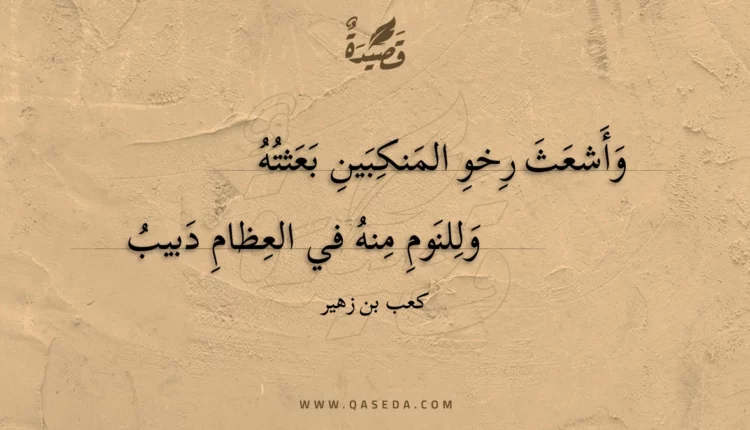 قَصِيدَةٌ
وَأَشعَثَ رِخوِ المَنكِبَينِ بَعَثتُهُ
وَلِلنَومِ مِنهُ في العِظامِ دَبيبُ
كعب بن زهير
WWW.QASEDA.COM